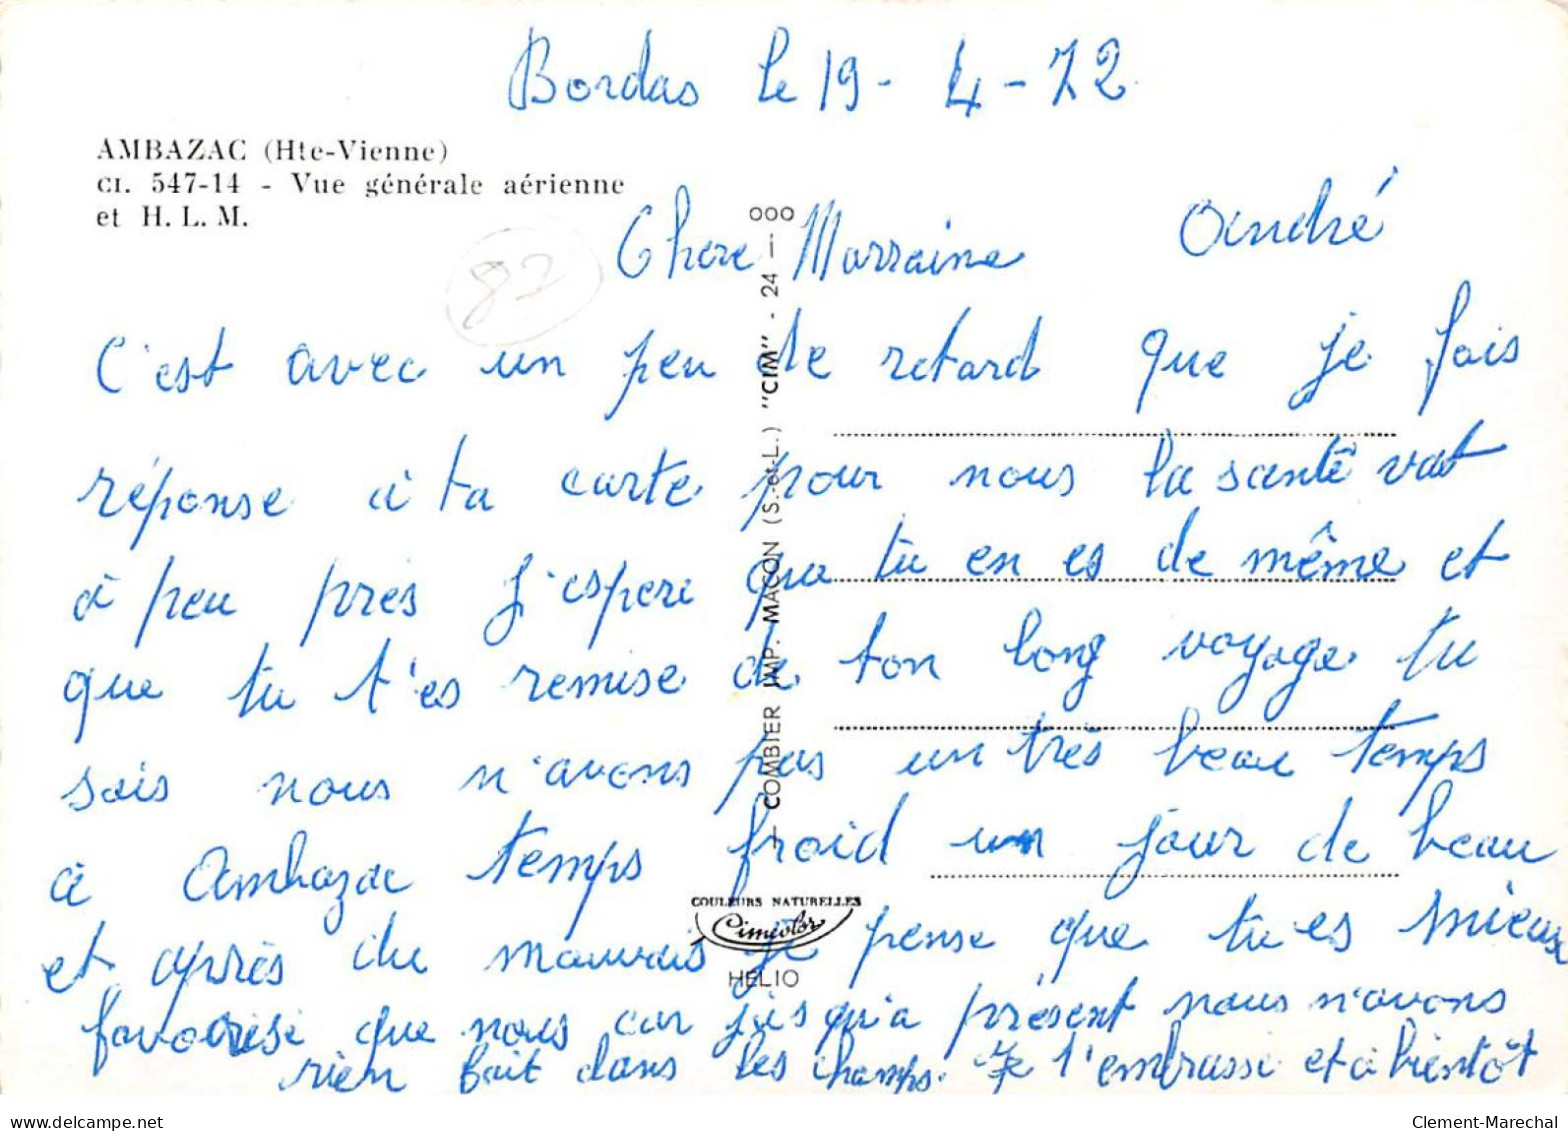 Bordas le 19-4-72
AMBAZAC (Hte-Vienne)
CI. 547-14 - Vue générale aérienne
et H. L. M.
87
Chere Marraine André
C'est avec un peu de retard que je fais
réponse à ta carte pour nous la santé vat
à peu près J'espere que tu en es de même et
que tu t'es remise de ton long voyage tu
sais nous n'avons pas un très beau temps
à Ambazac temps froid un jour de beau
et après du mauvais je pense que tu es mieux
favorisé que nous car jusqu'a présent nous n'avons
rien fait dans les champs. Je t'embrasse et à bientôt
COMBIER IMP. MACON (S.-et-L.) "CIM" - 24 - OOO
COULEURS NATURELLES
Cimcolor
HELIO
www.delcampe.net
Clement-Marechal